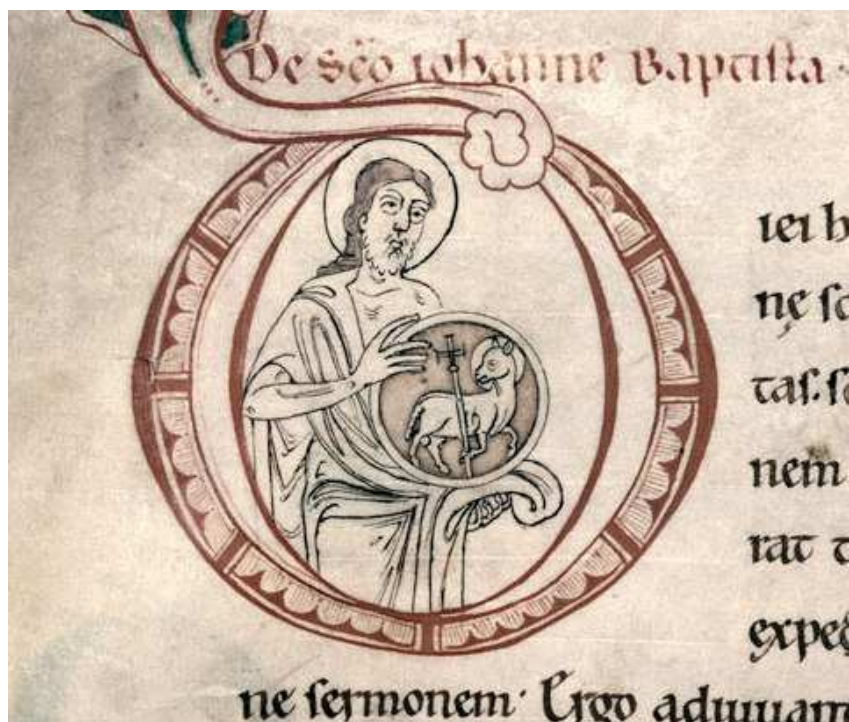 De sc̄o iohanne Baptista
iei h
nę sc
tas. sc
nem
rat t
expec
ne sermonem. Ergo adiuuam